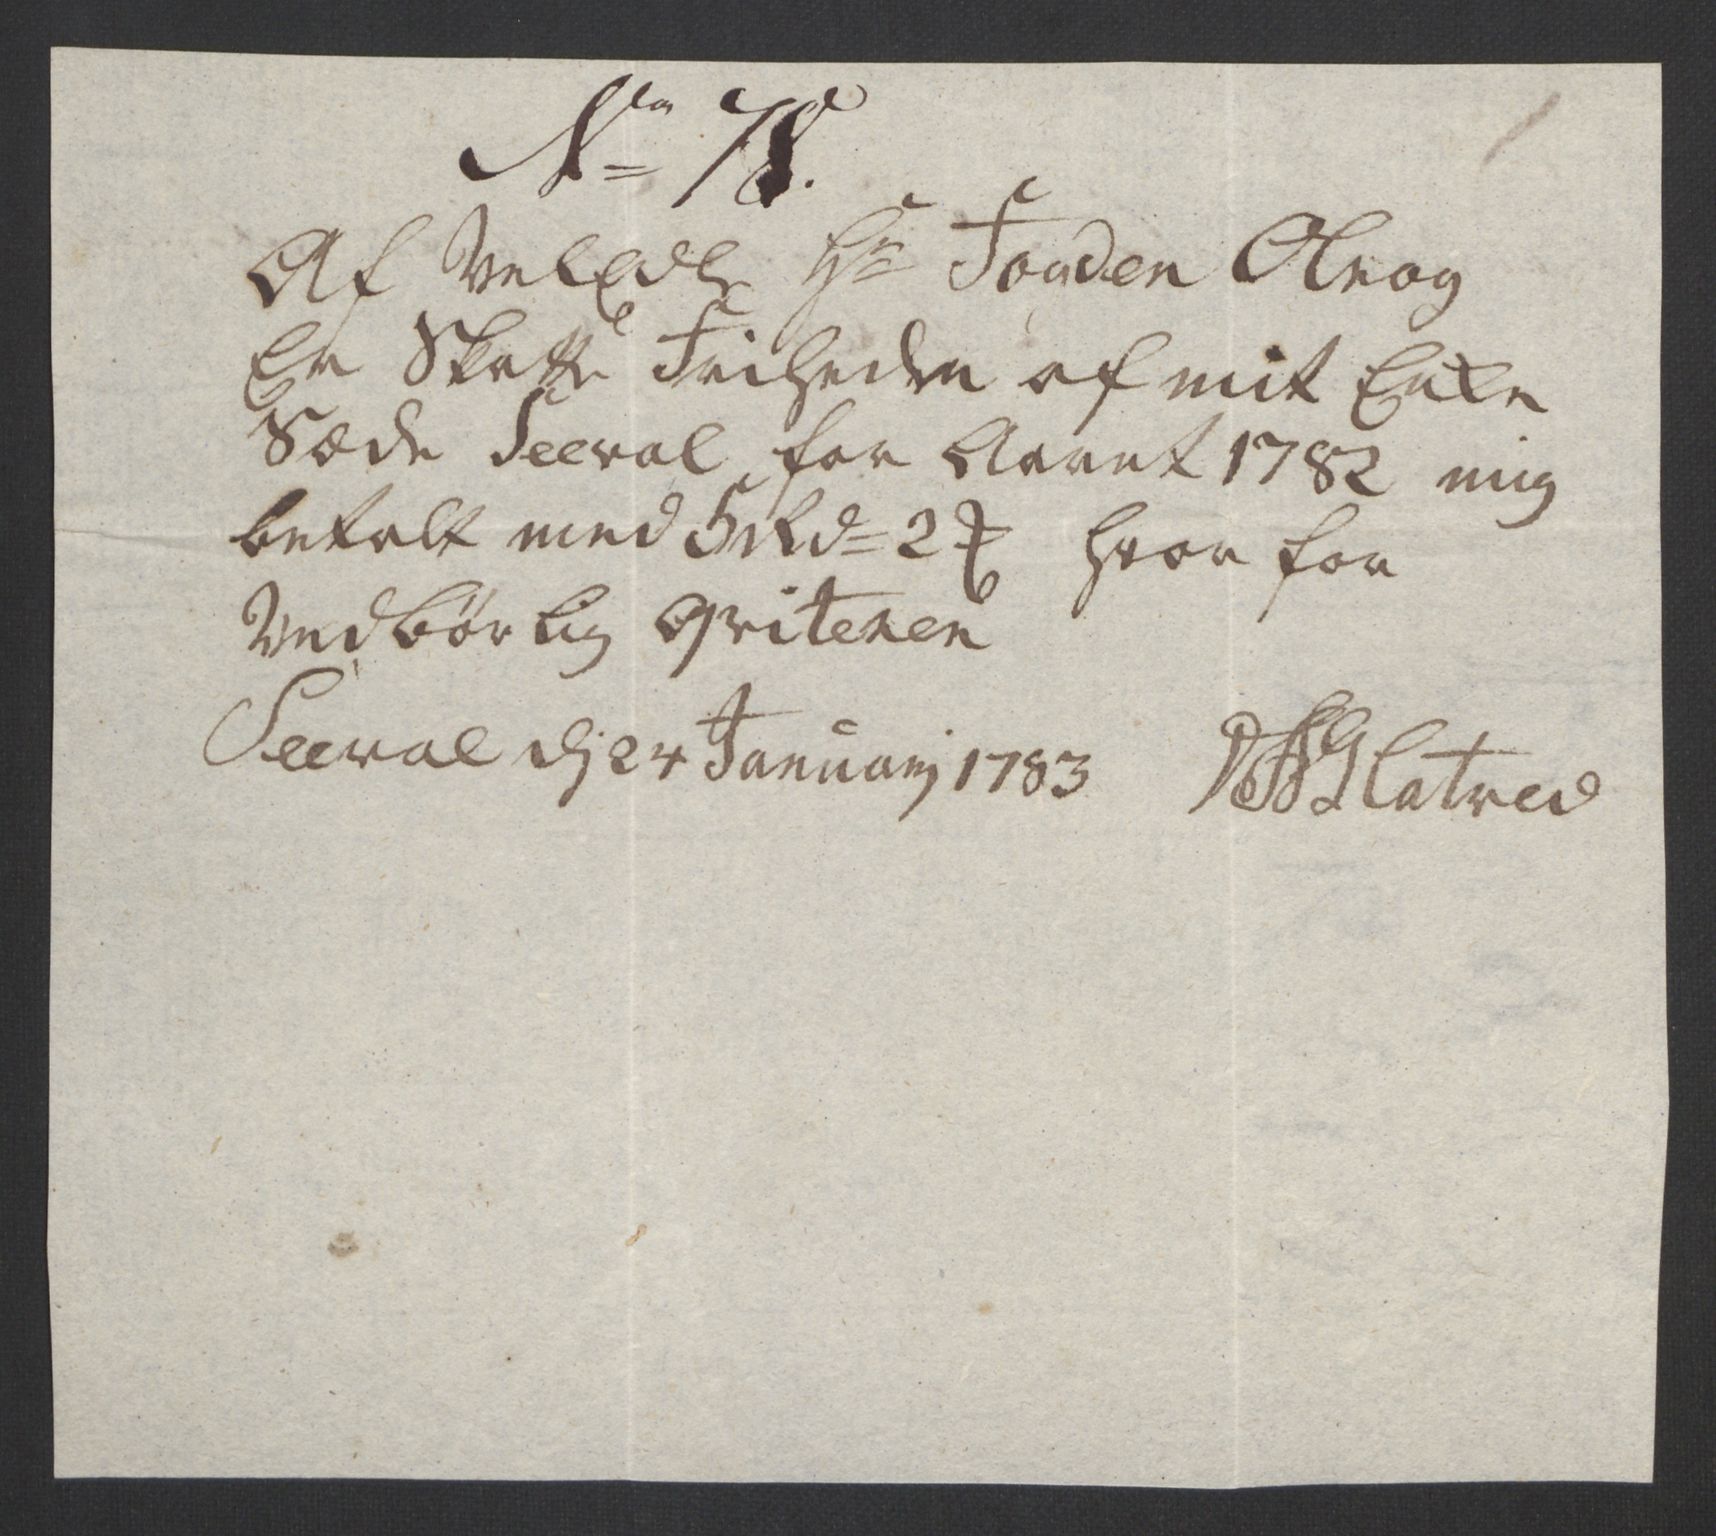 No 78.
Af Vel Edle Hr Fogden Olrog
Er Skatte Friheden af mit Enke
Sæde Seeval for Aaret 1782 mig
betalt med 5 Rd = 2 ß hvor for
Vedbørlig Qviteres
Seeval dj 24 Januarij 1783 Slatved